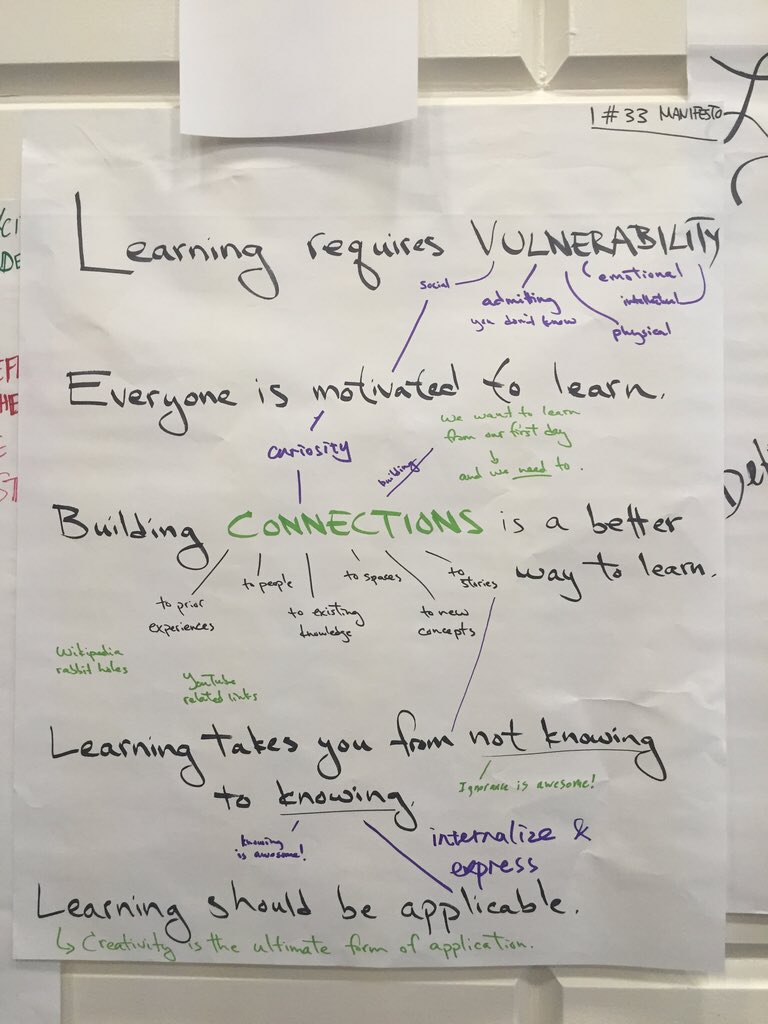 1 #33 MANIFESTO
Learning requires VULNERABILITY
social
admitting
you don't know
emotional
intellectual
physical
Everyone is motivated to learn.
curiosity
building
we want to learn
from our first day
and we need to.
Building CONNECTIONS is a better
way to learn.
to prior
experiences
to people
to existing
knowledge
to spaces
to new
concepts
to
stories
Wikipedia
rabbit holes
YouTube
related links
Learning takes you from not knowing
to knowing.
Ignorance is awesome!
knowing
is awesome!
internalize &
express
Learning should be applicable.
↳ Creativity is the ultimate form of application.